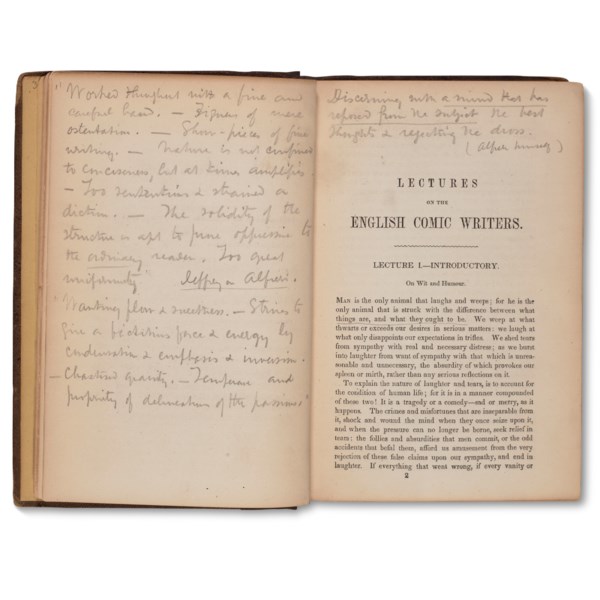 "Worked throughout with a fine and
careful hand. — Figures of mere
ostentation. — Show-pieces of fine
writing. — Nature is not confined
to conciseness, but at times amplifies.
— Too sententious & strained a
diction. — The solidity of the
structure is apt to prove oppressive to
the ordinary reader. Too great
uniformity" Jeffrey on Alfieri.
"Wanting flow & sweetness. — Strives to
give a factitious force & energy by
condensation & emphasis & inversion.
— Chastised gravity. — Temperance and
propriety of delineation of the passions"
Discerning with a mind that has
reposed from the subject the best
thoughts & rejecting the dross.
(Alfieri himself)
LECTURES
ON THE
ENGLISH COMIC WRITERS.
LECTURE I.—INTRODUCTORY.
On Wit and Humour.
MAN is the only animal that laughs and weeps; for he is the
only animal that is struck with the difference between what
things are, and what they ought to be. We weep at what
thwarts or exceeds our desires in serious matters: we laugh at
what only disappoints our expectations in trifles. We shed tears
from sympathy with real and necessary distress; as we burst
into laughter from want of sympathy with that which is unrea-
sonable and unnecessary, the absurdity of which provokes our
spleen or mirth, rather than any serious reflections on it.
To explain the nature of laughter and tears, is to account for
the condition of human life; for it is in a manner compounded
of these two! It is a tragedy or a comedy—sad or merry, as it
happens. The crimes and misfortunes that are inseparable from
it, shock and wound the mind when they once seize upon it,
and when the pressure can no longer be borne, seek relief in
tears: the follies and absurdities that men commit, or the odd
accidents that befal them, afford us amusement from the very
rejection of these false claims upon our sympathy, and end in
laughter. If everything that went wrong, if every vanity or
2